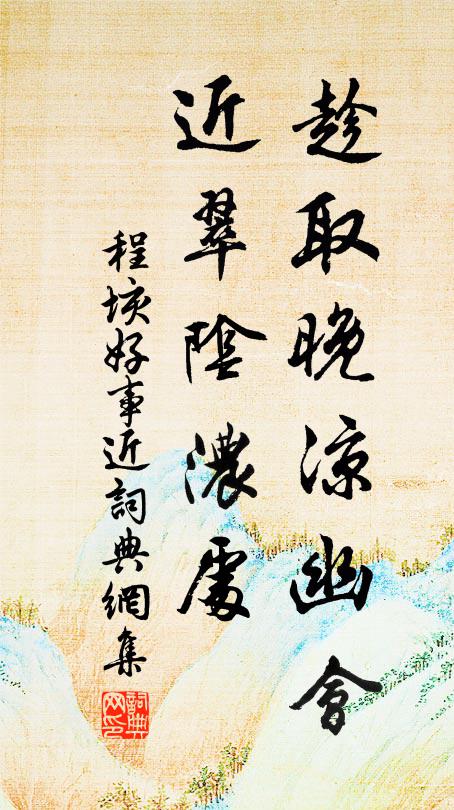 趁取晚涼幽會
近翠陰濃處
程垓好事近詞典網集
詞典
网印